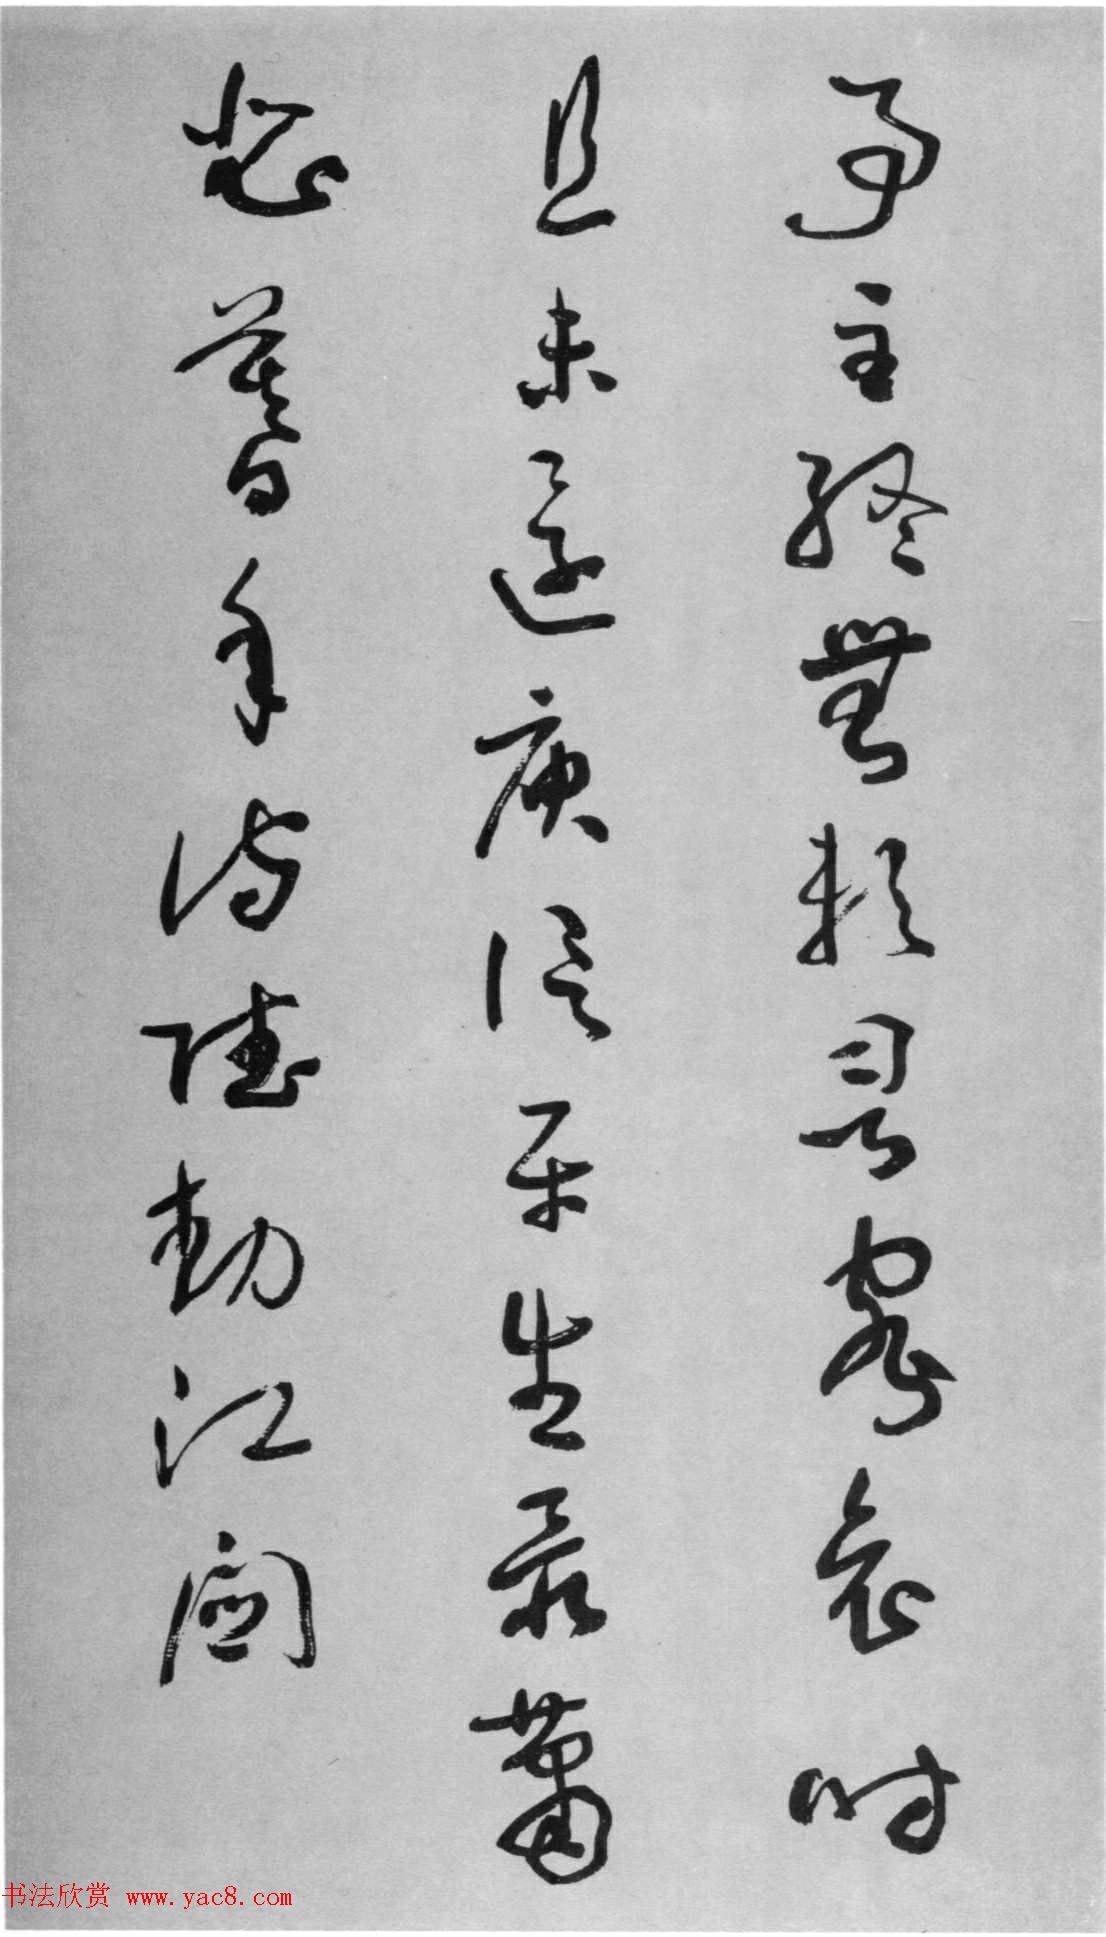 事主終無賴詞客哀時
且未還庾信平生最蕭
瑟暮年詩賦動江關
书法欣赏 www.yac8.com